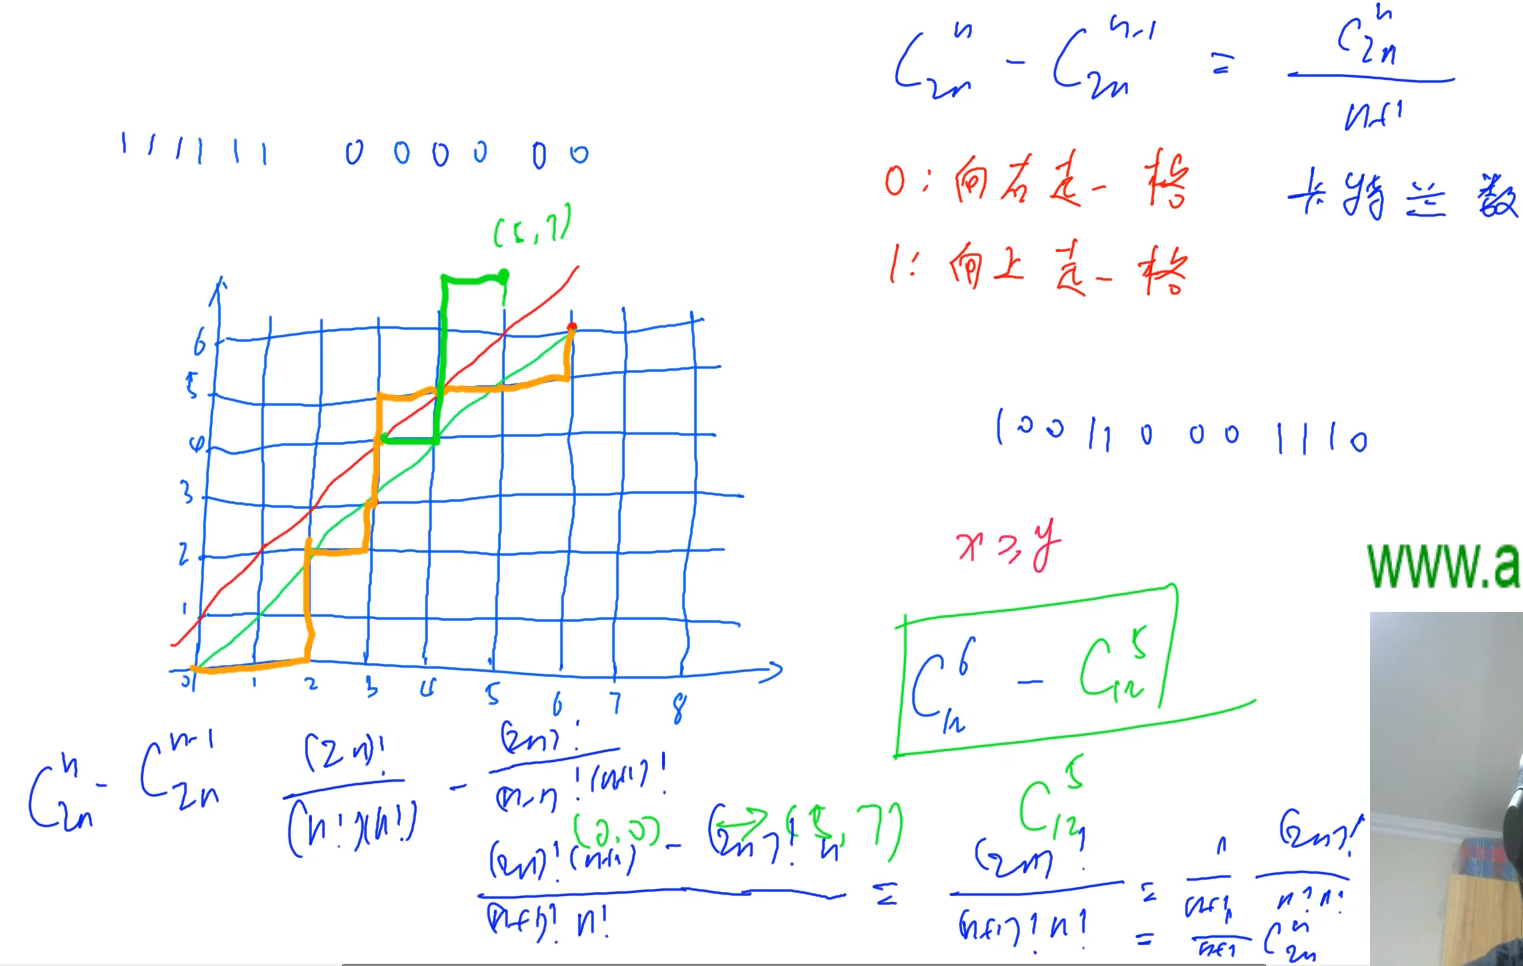 C_{2n}^{n} - C_{2n}^{n-1} = \frac{C_{2n}^{n}}{n+1}
1 1 1 1 1 1 0 0 0 0 0 0
0: 向右走一格 卡特兰数
(5,7)
1: 向上走一格
6
5
4
3
2
1
0 1 2 3 4 5 6 7 8
1 0 0 1 1 0 0 0 1 1 1 0
x ≥ y
www.a
C_{12}^{6} - C_{12}^{5}
C_{12}^{5}
C_{2n}^{n} - C_{2n}^{n-1} \frac{(2n)!}{(n!)(n!)} - \frac{(2n)!}{(n-1)!(n+1)!}
(0,0) ↔ (5,7)
\frac{(2n)!(n+1) - (2n)! n}{(n+1)! n!} = \frac{(2n)!}{(n+1)! n!} = \frac{1}{n+1} \frac{(2n)!}{n! n!}
= \frac{1}{n+1} C_{2n}^{n}